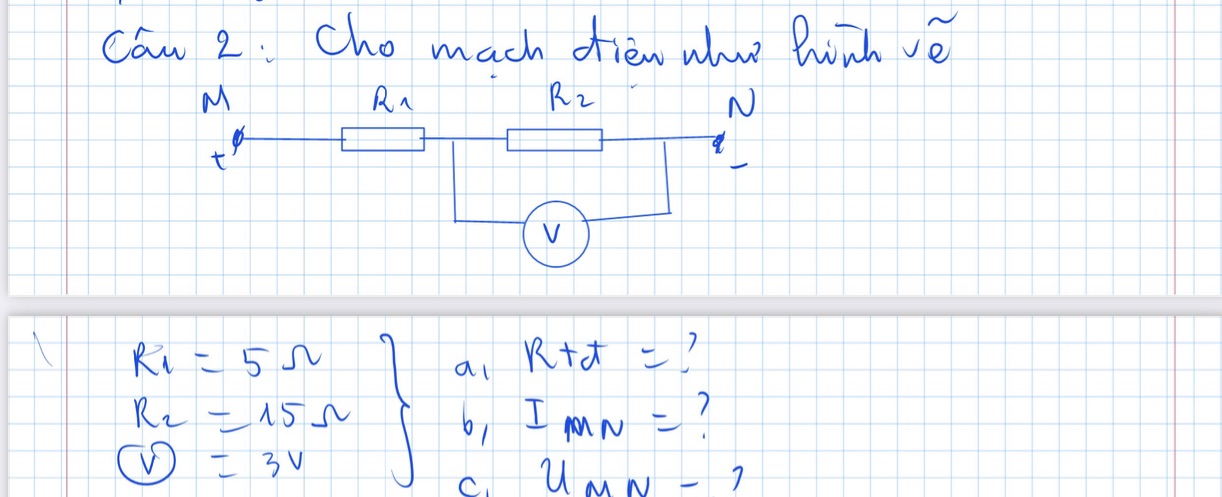 Câu 2: Cho mạch điện như hình vẽ
M R1 R2 N
+ -
V
R1 = 5 Ω
R2 = 15 Ω
V = 3V
a, Rtđ = ?
b, I MN = ?
c, U MN = ?